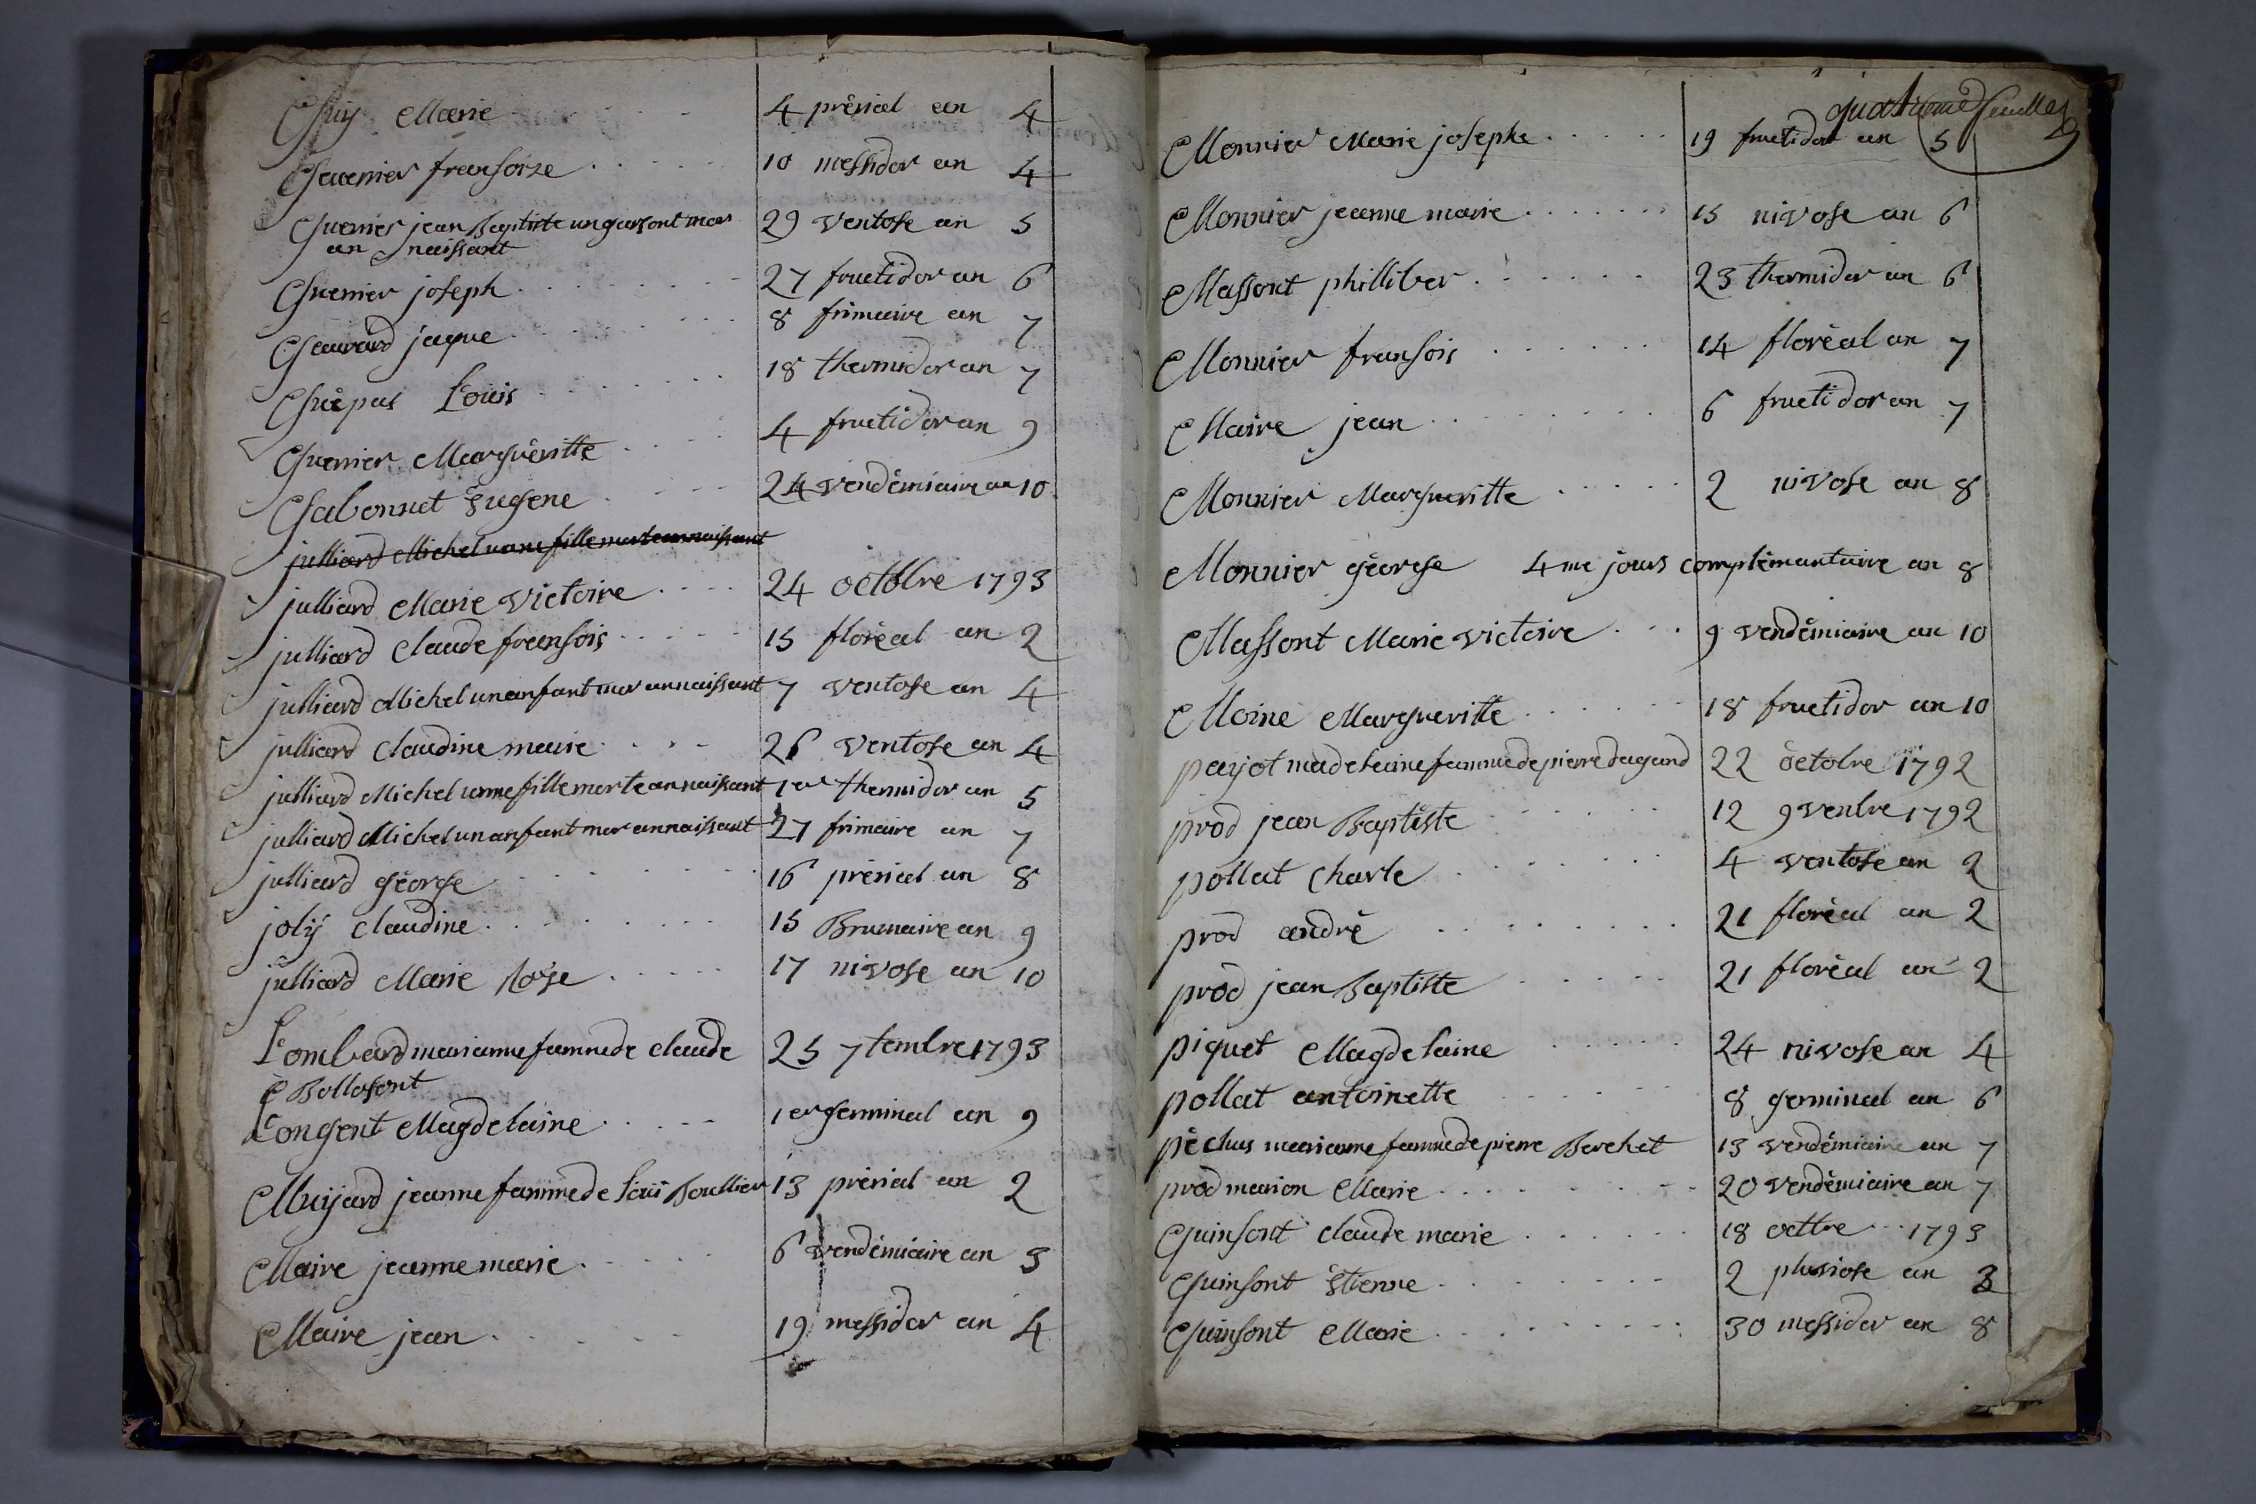 Guy Marie 4 prérial an 4
Guenier fransoize 10 messidor an 4
Guenier jean Baptiste un garsont mor 29 ventose an 5
an naissant
Guenier joseph 27 fructidor an 6
Gauvard jaque 8 frimaire an 7
Guépas Louis 18 thermidor an 7
Guenier Marguéritte 4 fructidor an 9
Gabonnet Eugene 24 vendémiaire an 10
julliard Michel unne fille morte annaissant
julliard Marie Victoire 24 octobre 1793
julliard Claude fransois 15 floréal an 2
julliard Michel un anfant mor annaissant 7 ventose an 4
julliard Claudine marie 26 ventose an 4
julliard Michel unne fille morte annaissant 1er thermidor an 5
julliard Michel un anfant mor annaissant 27 frimaire an 7
julliard géorge 16 prérial an 8
jolÿ Claudine 15 Brumaire an 9
julliard Marie Rose 17 nivose an 10
Lombard marianne famme de claude 25 7tembre 1793
Bollosont
Longent Magdelaine 1er germinal an 9
Muyard jeanne famme de Loüi Boullier 13 prérial an 2
Maire jeanne marie 6 vendémiaire an 3
Maire jean 19 messidor an 4
quatrieme feuille
Monnier Marie josephe 19 fructidor an 5
Monnier jeanne marie 15 nivose an 6
Massont philliber 23 thermidor an 6
Monnier fransois 14 floréal an 7
Maire jean 6 fructidor an 7
Monnier Margueritte 2 nivose an 8
Monnier géorge 4me jours complémantaire an 8
Massont Marie victoire 9 vendémiaire an 10
Moine Margueritte 18 fructidor an 10
payot madelaine famme de pierre dagand 22 octobre 1792
prod jean Baptiste 12 9venbre 1792
pollat Charle 4 ventose an 2
prod andré 21 floréal an 2
prod jean Baptiste 21 floréal an 2
piquet Magdelaine 24 nivose an 4
pollat antoinette 8 germinal an 6
péchus marianne famme de pierre Berchet 13 vendémiaire an 7
prod marion Marie 20 vendémiaire an 7
Quinsont claude marie 18 octbre 1793
Quinsont Etienne 2 pluviose an 3
Quinsont Marie 30 messidor an 8